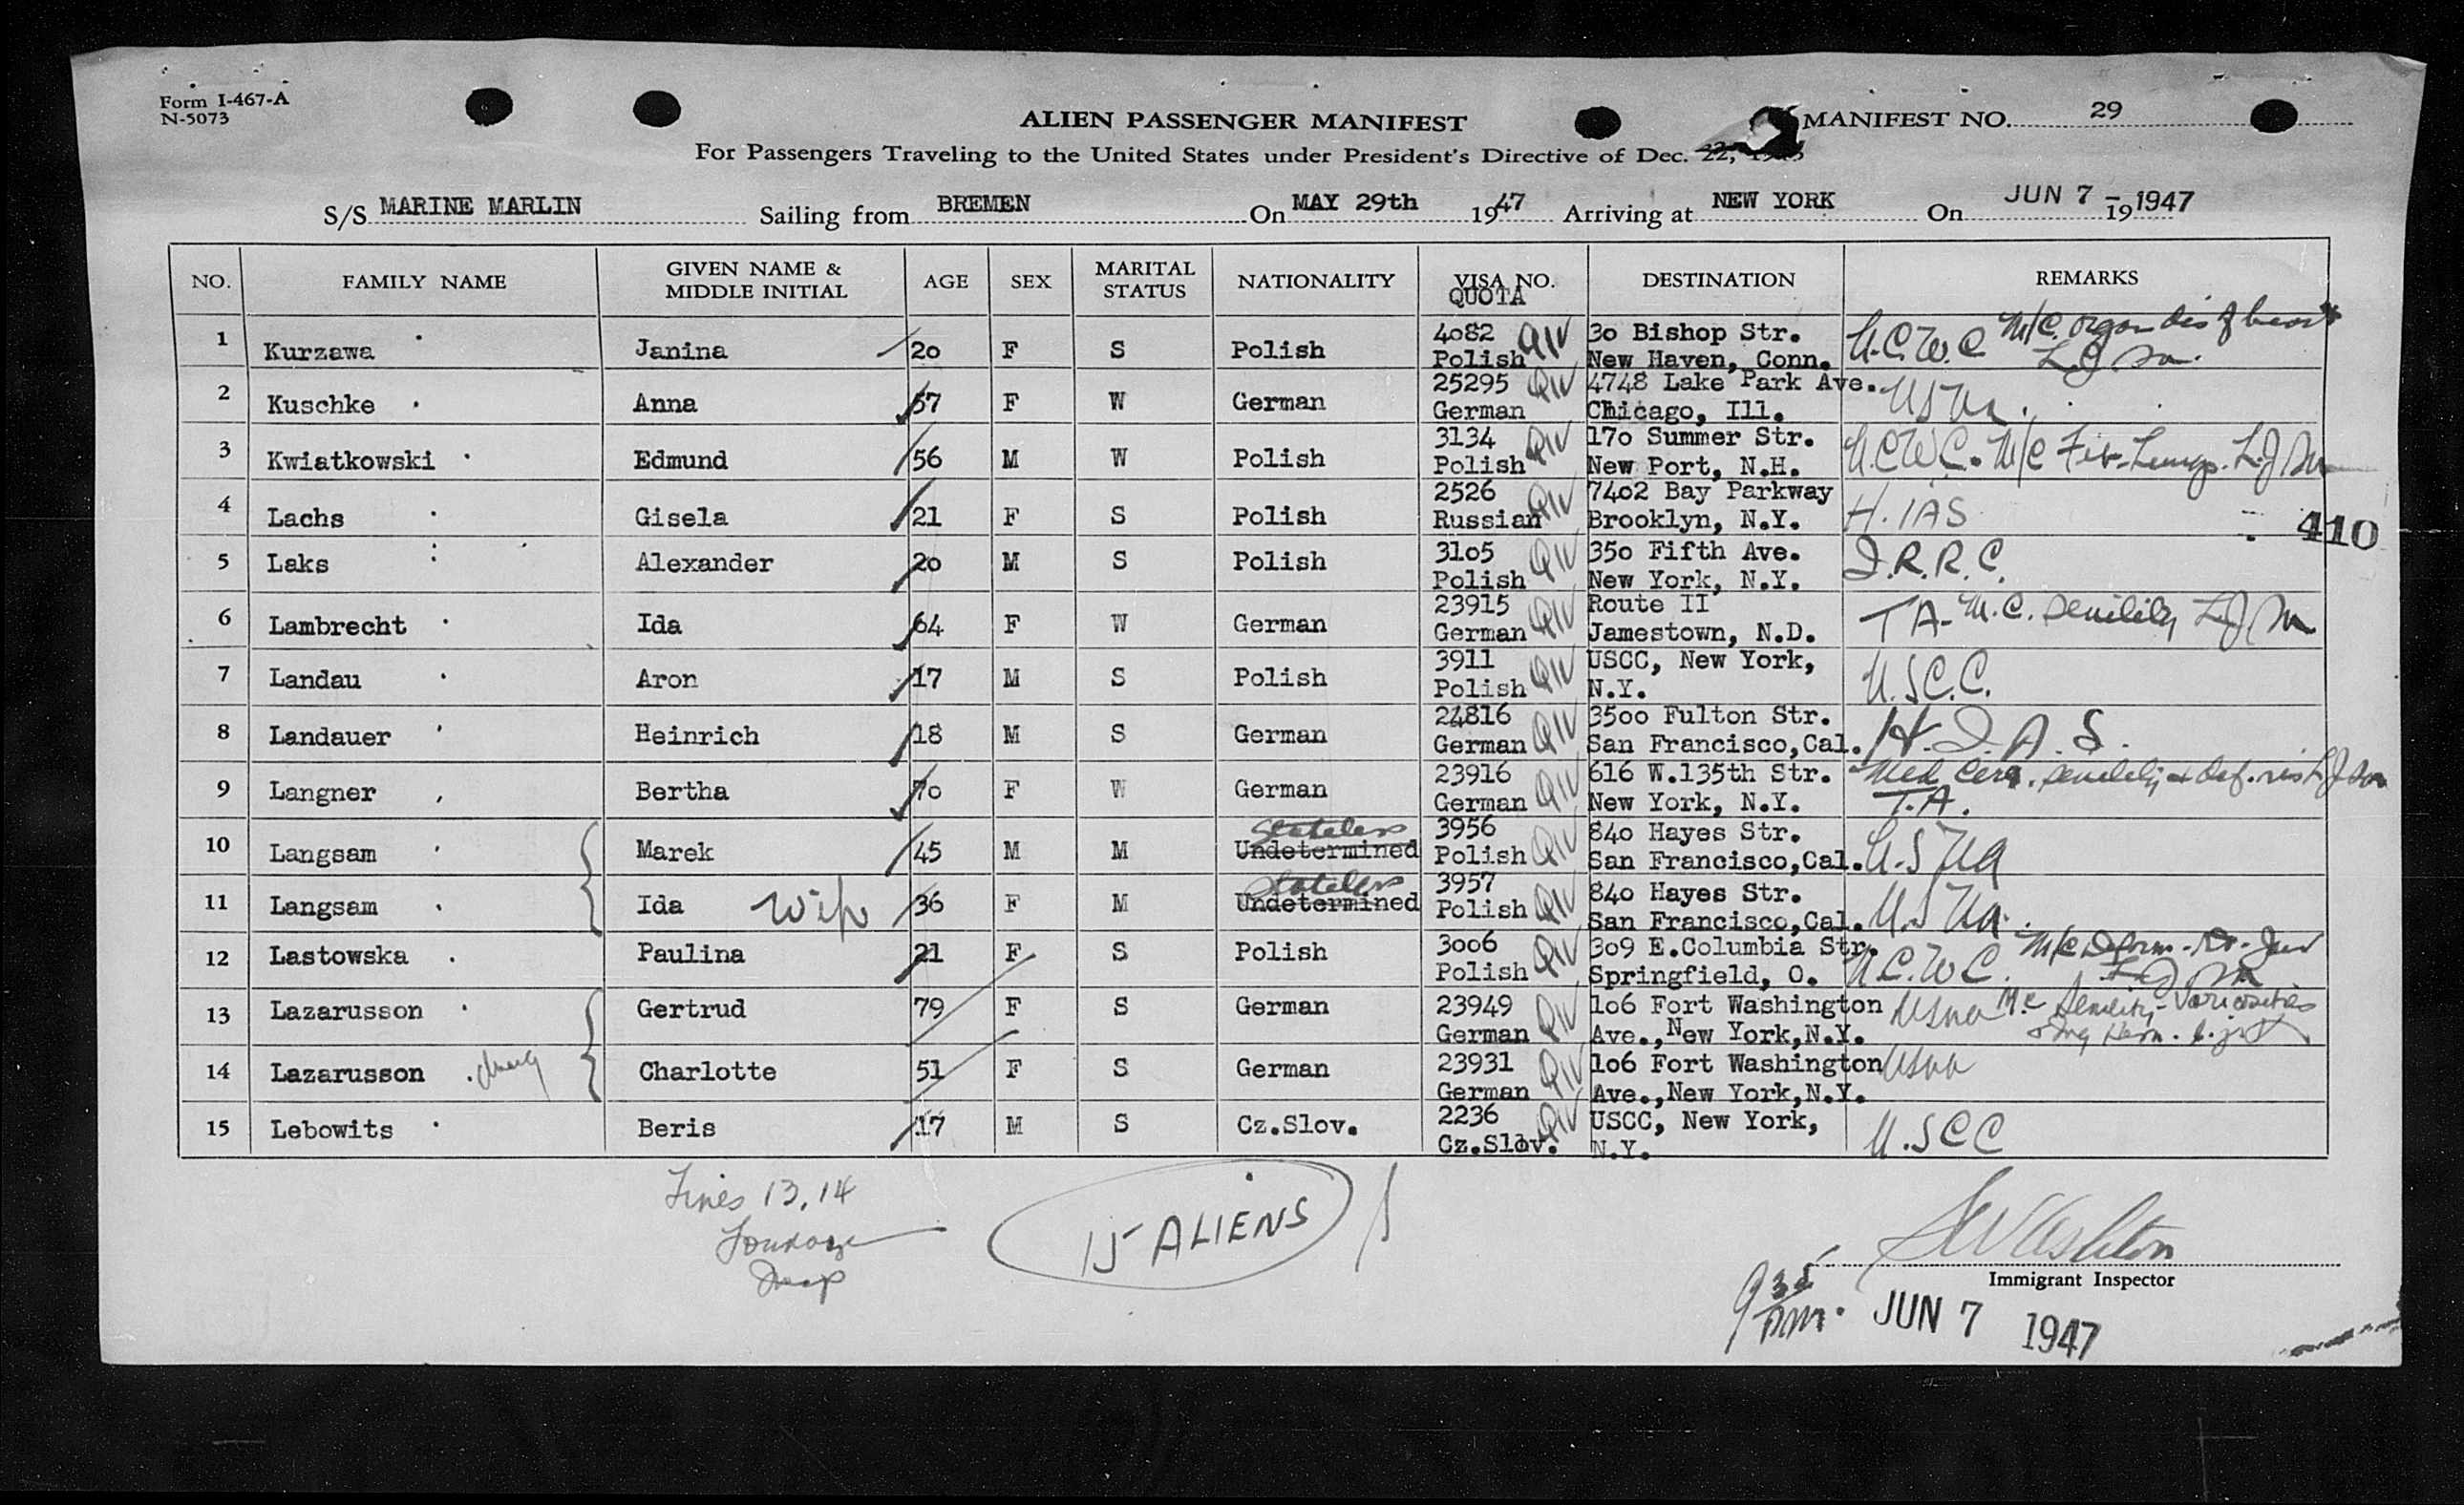 Form I-467-A
N-5073
ALIEN PASSENGER MANIFEST
MANIFEST NO. 29
For Passengers Traveling to the United States under President's Directive of Dec. 22,
S/S MARINE MARLIN Sailing from BREMEN On MAY 29th 1947 Arriving at NEW YORK On JUN 7 - 19 1947
NO. FAMILY NAME GIVEN NAME & MIDDLE INITIAL AGE SEX MARITAL STATUS NATIONALITY VISA NO. QUOTA DESTINATION REMARKS
1 Kurzawa Janina 20 F S Polish 4082 Polish QIV 30 Bishop Str. New Haven, Conn. N.C.W.C M/C organ dis of heart L.J.M.
2 Kuschke Anna 57 F W German 25295 German QIV 4748 Lake Park Ave. Chicago, Ill. USNA.
3 Kwiatkowski Edmund 56 M W Polish 3134 Polish QIV 170 Summer Str. New Port, N.H. N.C.W.C. M/C Fib-Lungs. L.J.M
4 Lachs Gisela 21 F S Polish 2526 Russian QIV 7402 Bay Parkway Brooklyn, N.Y. H.IAS
410
5 Laks Alexander 20 M S Polish 3105 Polish QIV 350 Fifth Ave. New York, N.Y. I.R.R.C.
6 Lambrecht Ida 64 F W German 23915 German QIV Route II Jamestown, N.D. TA- M.C. Senility L.J.M
7 Landau Aron 17 M S Polish 3911 Polish QIV USCC, New York, N.Y. U.S.C.C.
8 Landauer Heinrich 18 M S German 24816 German QIV 3500 Fulton Str. San Francisco,Cal. H.I.A.S.
9 Langner Bertha 70 F W German 23916 German QIV 616 W.135th Str. New York, N.Y. Med Cert. Senility & def. vis L.J.M T.A.
10 Langsam Marek 45 M M Stateless Undetermined 3956 Polish QIV 840 Hayes Str. San Francisco,Cal. U.S.NA
11 Langsam Ida wife 36 F M Stateless Undetermined 3957 Polish QIV 840 Hayes Str. San Francisco,Cal. U.S.NA.
12 Lastowska Paulina 21 F S Polish 3006 Polish QIV 309 E.Columbia Str. Springfield, O. N.C.W.C. M/C Deform. L.J.M
13 Lazarusson Gertrud 79 F S German 23949 German QIV 106 Fort Washington Ave.,New York,N.Y. USNA M.C Senility-Varicosities
14 Lazarusson Charlotte 51 F S German 23931 German QIV 106 Fort Washington Ave.,New York,N.Y. USNA
15 Lebowits Beris 17 M S Cz.Slov. 2236 Cz.Slov. QIV USCC, New York, N.Y. U.SCC
Lines 13, 14
15 ALIENS
Immigrant Inspector
9 35 AM. JUN 7 1947